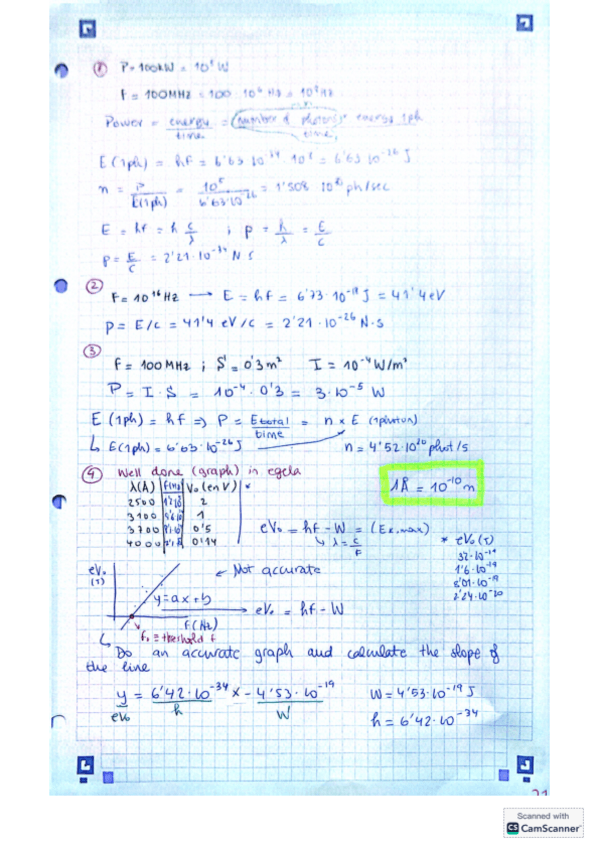 ① P=100kW = 10⁵ W
F = 100MHz = 100 · 10⁶ Hz = 10⁸ Hz
Power = energy/time = (number of photons) · energy 1ph/time
E(1ph) = hf = 6'63 10⁻³⁴ · 10⁸ = 6'63 10⁻²⁶ J
n = P/E(1ph) = 10⁵/6'63·10⁻²⁶ = 1'508 · 10³⁰ ph/sec
E = hf = h c/λ ; p = h/λ = E/c
p = E/c = 2'21·10⁻³⁴ N·s
② F = 10¹⁶ Hz → E = hf = 6'73·10⁻¹⁸ J = 41'4 eV
p = E/c = 41'4 eV/c = 2'21·10⁻²⁶ N·s
③ f = 100 MHz ; S = 0'3 m² I = 10⁻⁴ W/m²
P = I · S = 10⁻⁴ · 0'3 = 3·10⁻⁵ W
E (1ph) = hf ⇒ P = E total/time = n × E (1photon)
↳ E(1ph) = 6'63·10⁻²⁶ J n = 4'52·10²⁰ phot/s
④ Well done (graph) in egela
1Å = 10⁻¹⁰ m
λ(Å) f(Hz) V₀ (en V) *
2500 2
3100 1
3700 0'5
4000 0'14
eV₀ = hf - W = (Ek,max)
↳ λ = c/f
* eV₀ (J)
32·10⁻¹⁹
1'6·10⁻¹⁹
8'01·10⁻¹⁹
2'24·10⁻²⁰
eV₀ (J)
← Not accurate
y = ax + b → eV₀ = hf - W
f(Hz)
f₀ = threshold f
↳ Do an accurate graph and calculate the slope of
the line
y = 6'42·10⁻³⁴ x - 4'53·10⁻¹⁹ W = 4'53·10⁻¹⁹ J
eV₀ h W h = 6'42·10⁻³⁴
Scanned with
CS CamScanner